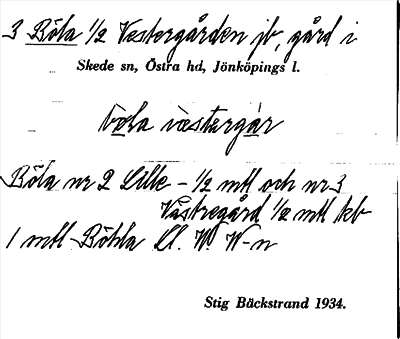 3 Böla 1/2 Vestergården jb, gård i
Skede sn, Östra hd, Jönköpings l.
bo̤la västərgår
Böla nr 2 Lille - 1/2 mtl och nr 3
Västregård 1/2 mtl kb
1 mtl - Böhla Ll. W. W-n
Stig Bäckstrand 1934.